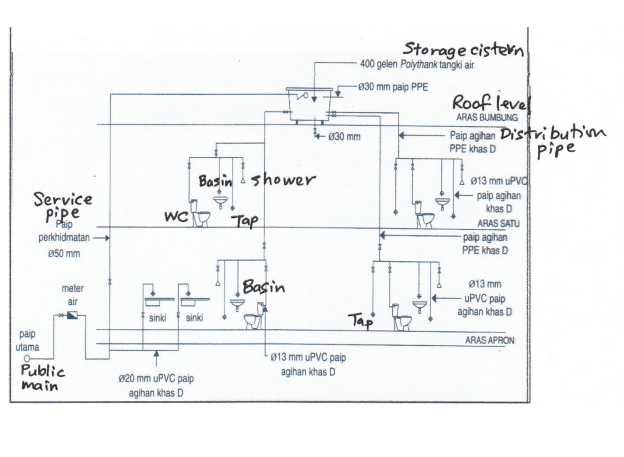 Storage cistern
400 gelen Polythank tangki air
Ø30 mm paip PPE
Roof level
ARAS BUMBUNG
Ø30 mm
Paip agihan
PPE khas D
Distribution
pipe
Basin
shower
Ø13 mm uPVC
paip agihan
khas D
WC
Tap
ARAS SATU
Service
pipe
Paip
perkhidmatan
Ø50 mm
paip agihan
PPE khas D
meter
air
sinki
sinki
Basin
Ø13 mm
uPVC paip
agihan khas D
Tap
paip
utama
Public
main
ARAS APRON
Ø13 mm uPVC paip
agihan khas D
Ø20 mm uPVC paip
agihan khas D